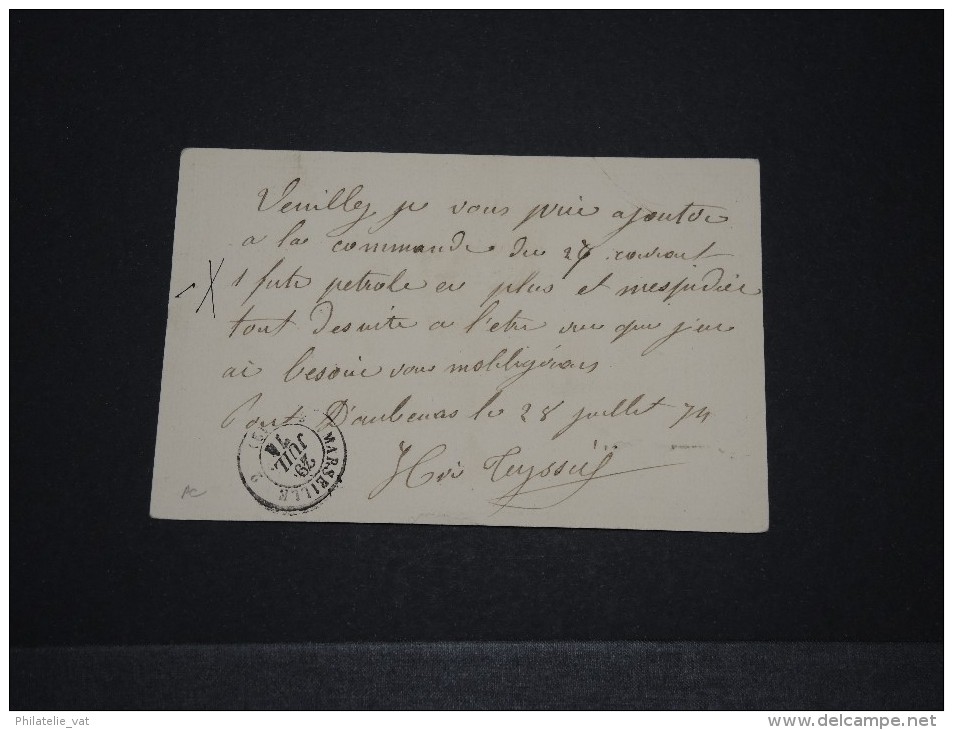 Veuillez je vous prie ajoutre
a la commande du 27 courant
1 fute petrole en plus et mespedier
tout desuite a l'etre vu que j'en
ai besoin vous mobligerais
Pont Daubenas le 28 juillet 74
Teyssier
MARSEILLE
29
JUIL.
74
PC
Philatelie_vat
www.delcampe.net